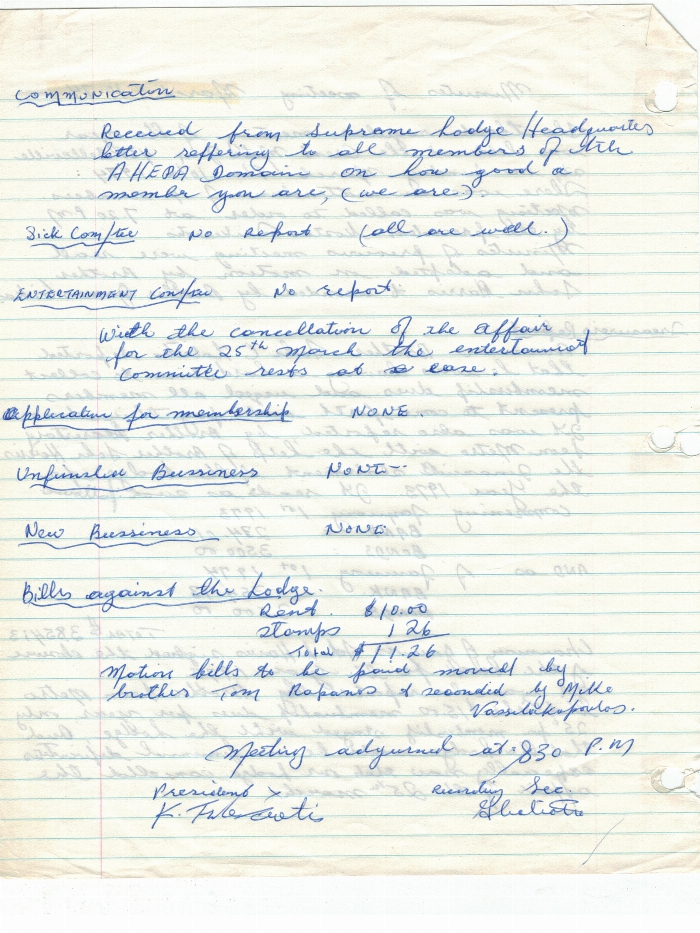 Communication
Received from Supreme Lodge/Headquartes
letter reffering to all members of
AHEPA Domain on how good a
member you are, (we are).
Sick Com/tee No Report (all are well.)
ENTERTAINMENT Com/tee No report
With the cancellation of the affair
for the 25th March the entertainment
Committe rests at ease.
application for membership NONE.
Unfinished Bussiness NONE
New Bussiness NONE
Bills against the Lodge.
Rent. $10.00
stamps 1 26
Total $11.26
Motion bills to be paid moved by
brother Tom Rapanos & seconded by Mike
Vassilakopoulos.
Meeting adyurned at 830 P.M
President x Recording Sec.
K.